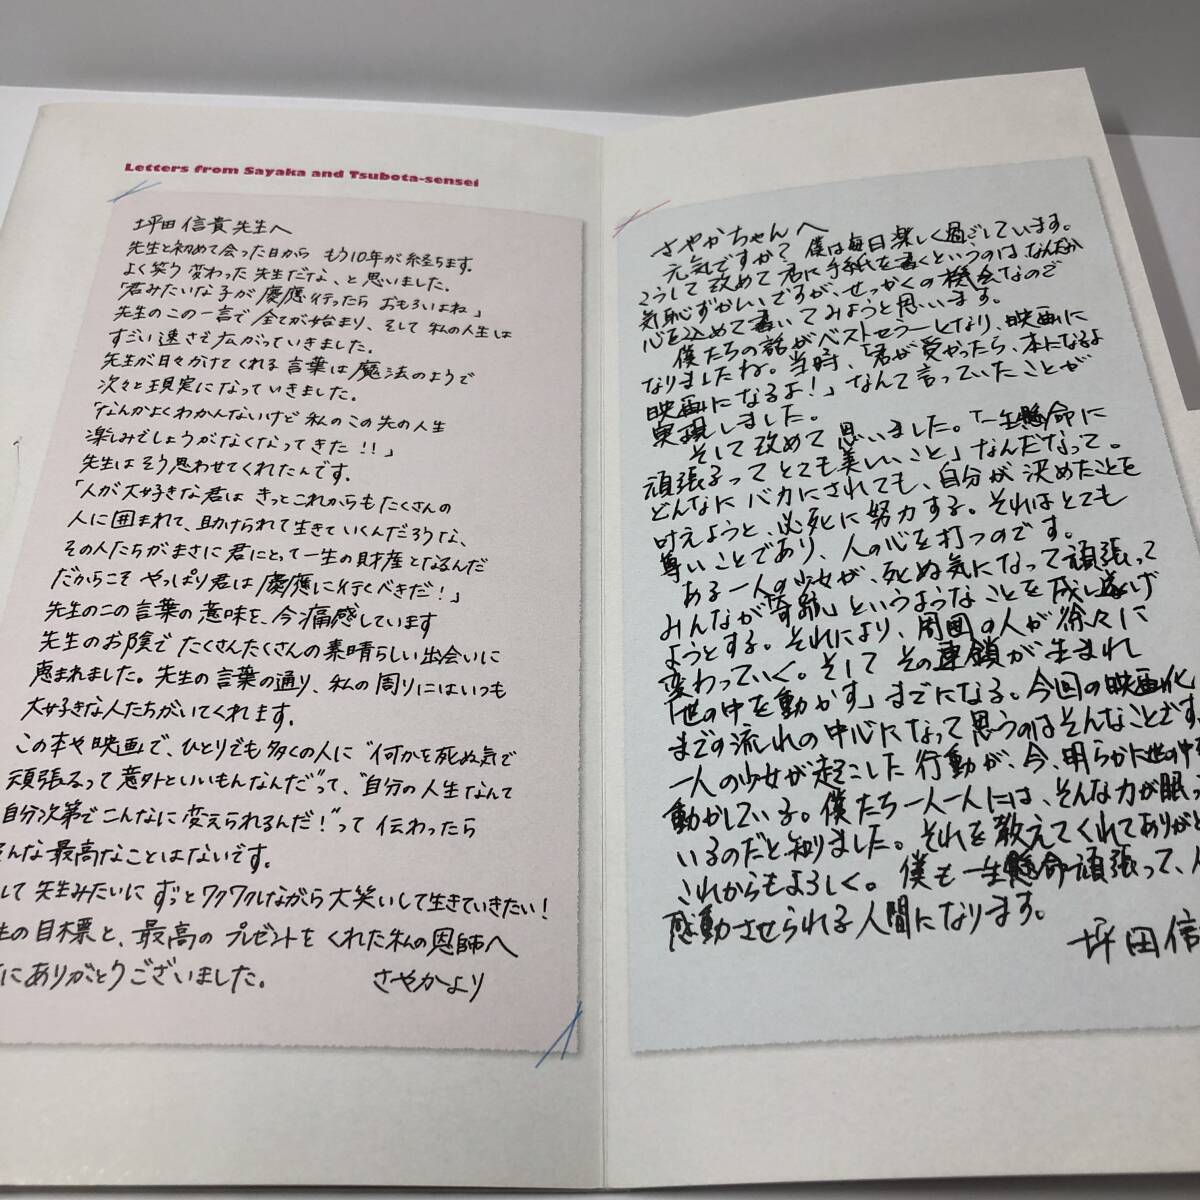 Letters from Sayaka and Tsubota-sensei
坪田信貴先生へ
先生と初めて会った日から もう10年が経ちます。
よく笑う変わった先生だな、と思いました。
「君みたいな子が慶應行ったら おもろいよね」
先生のこの一言で全てが始まり、そして私の人生は
すごい速さで広がっていきました。
先生が日々かけてくれる言葉は魔法のようで
次々と現実になっていきました。
「なんかよくわかんないけど 私のこの先の人生
楽しみでしょうがなくなってきた!!」
先生はそう思わせてくれたんです。
「人が大好きな君は きっとこれからもたくさんの
人に囲まれて、助けられて生きていくんだろうな、
その人たちがまさに君にとって一生の財産となるんだ
だからこそ やっぱり君は慶應に行くべきだ!」
先生のこの言葉の意味を、今痛感しています
先生のお陰で たくさんたくさんの素晴らしい出会いに
恵まれました。先生の言葉の通り、私の周りにはいつも
大好きな人たちがいてくれます。
この本や映画で、ひとりでも多くの人に“何かを死ぬ気で
頑張るって意外といいもんなんだ”って、“自分の人生なんて
自分次第でこんなに変えられるんだ!”って 伝わったら
そんな最高なことはないです。
して先生みたいに ずっとワクワクしながら大笑いして生きていきたい!
生の目標と、最高のプレゼントをくれた私の恩師へ
にありがとうございました。 さやかより
さやかちゃんへ
元気ですか? 僕は毎日楽しく過ごしています。
こうして改めて君に手紙を書くというのはなんだか
気恥ずかしいですが、せっかくの機会なので
心を込めて書いてみようと思います。
僕たちの話がベストセラーとなり、映画に
なりましたね。当時、「君が受かったら、本になるよ
映画になるよ!」なんて言っていたことが
実現しました。
そして改めて思いました。「一生懸命に
頑張るってとても美しいこと」なんだなって。
どんなにバカにされても、自分が決めたことを
叶えようと、必死に努力する。それはとても
尊いことであり、人の心を打つのです。
ある一人の少女が、死ぬ気になって頑張って
みんなが「奇跡」というようなことを成し遂げ
ようとする。それにより、周囲の人が徐々に
変わっていく。そしてその連鎖が生まれ
「世の中を動かす」までになる。今回の映画化
までの流れの中心になって思うのはそんなことです。
一人の少女が起こした行動が、今、明らかに世の中
動かしている。僕たち一人一人には、そんな力が眠っ
いるのだと知りました。それを教えてくれてありがと
これからもよろしく。僕も一生懸命頑張って、人
感動させられる人間になります。
坪田信